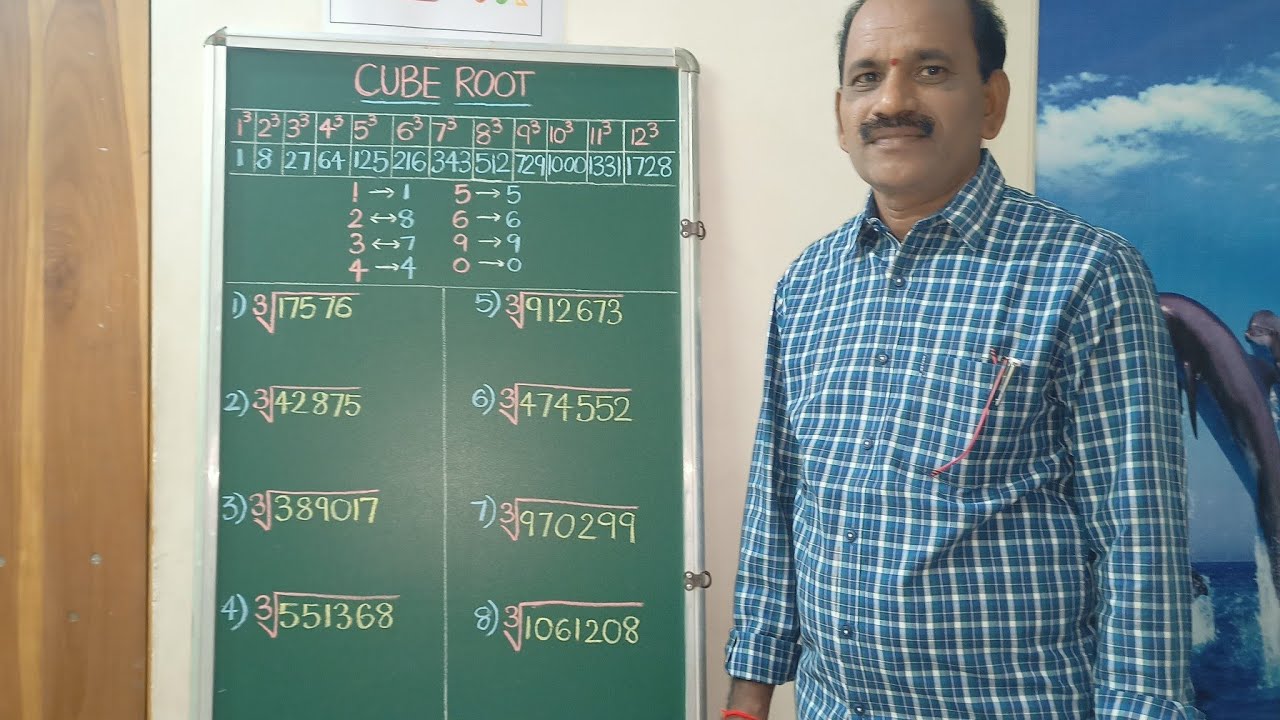 CUBE ROOT
1³ 2³ 3³ 4³ 5³ 6³ 7³ 8³ 9³ 10³ 11³ 12³
1 8 27 64 125 216 343 512 729 1000 1331 1728
1 → 1 5 → 5
2 ↔ 8 6 → 6
3 ↔ 7 9 → 9
4 → 4 0 → 0
1) ∛17576
2) ∛42875
3) ∛389017
4) ∛551368
5) ∛912673
6) ∛474552
7) ∛970299
8) ∛1061208